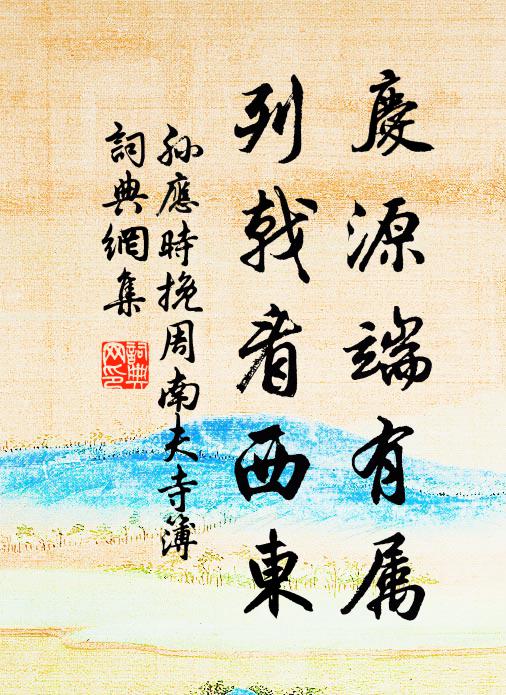 慶源端有属
列戟看西東
孫應時挽周南夫寺簿
詞典網集
詞典網印